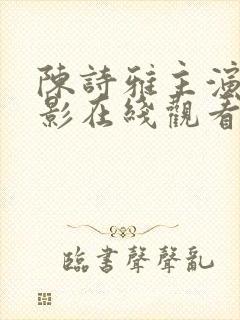 陳詩雅主演
影在綫觀看
臨書聲聲亂